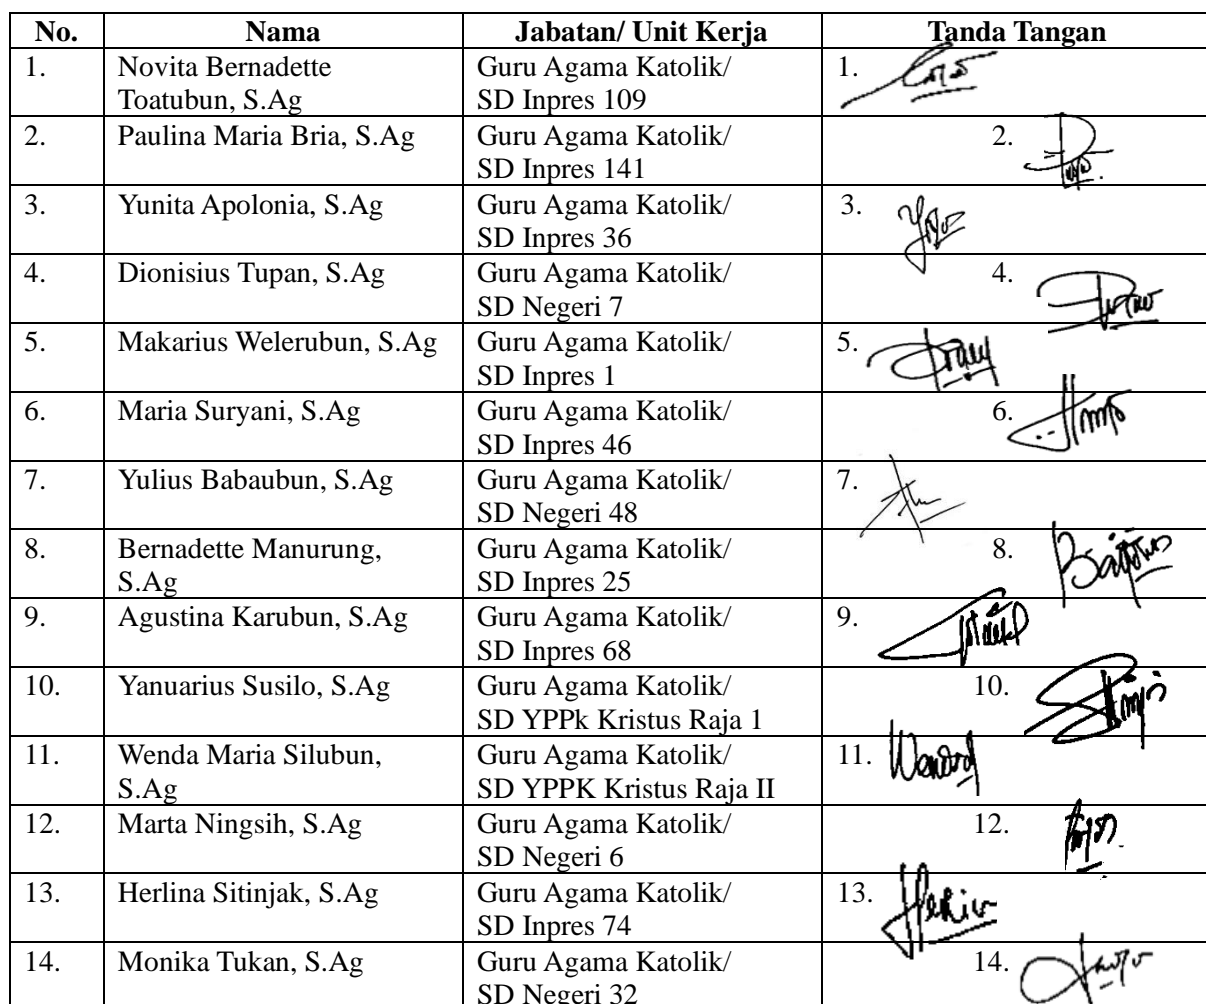 No. Nama Jabatan/ Unit Kerja Tanda Tangan
1. Novita Bernadette Guru Agama Katolik/ 1.
Toatubun, S.Ag SD Inpres 109
2. Paulina Maria Bria, S.Ag Guru Agama Katolik/ 2.
SD Inpres 141
3. Yunita Apolonia, S.Ag Guru Agama Katolik/ 3.
SD Inpres 36
4. Dionisius Tupan, S.Ag Guru Agama Katolik/ 4.
SD Negeri 7
5. Makarius Welerubun, S.Ag Guru Agama Katolik/ 5.
SD Inpres 1
6. Maria Suryani, S.Ag Guru Agama Katolik/ 6.
SD Inpres 46
7. Yulius Babaubun, S.Ag Guru Agama Katolik/ 7.
SD Negeri 48
8. Bernadette Manurung, Guru Agama Katolik/ 8.
S.Ag SD Inpres 25
9. Agustina Karubun, S.Ag Guru Agama Katolik/ 9.
SD Inpres 68
10. Yanuarius Susilo, S.Ag Guru Agama Katolik/ 10.
SD YPPk Kristus Raja 1
11. Wenda Maria Silubun, Guru Agama Katolik/ 11.
S.Ag SD YPPK Kristus Raja II
12. Marta Ningsih, S.Ag Guru Agama Katolik/ 12.
SD Negeri 6
13. Herlina Sitinjak, S.Ag Guru Agama Katolik/ 13.
SD Inpres 74
14. Monika Tukan, S.Ag Guru Agama Katolik/ 14.
SD Negeri 32